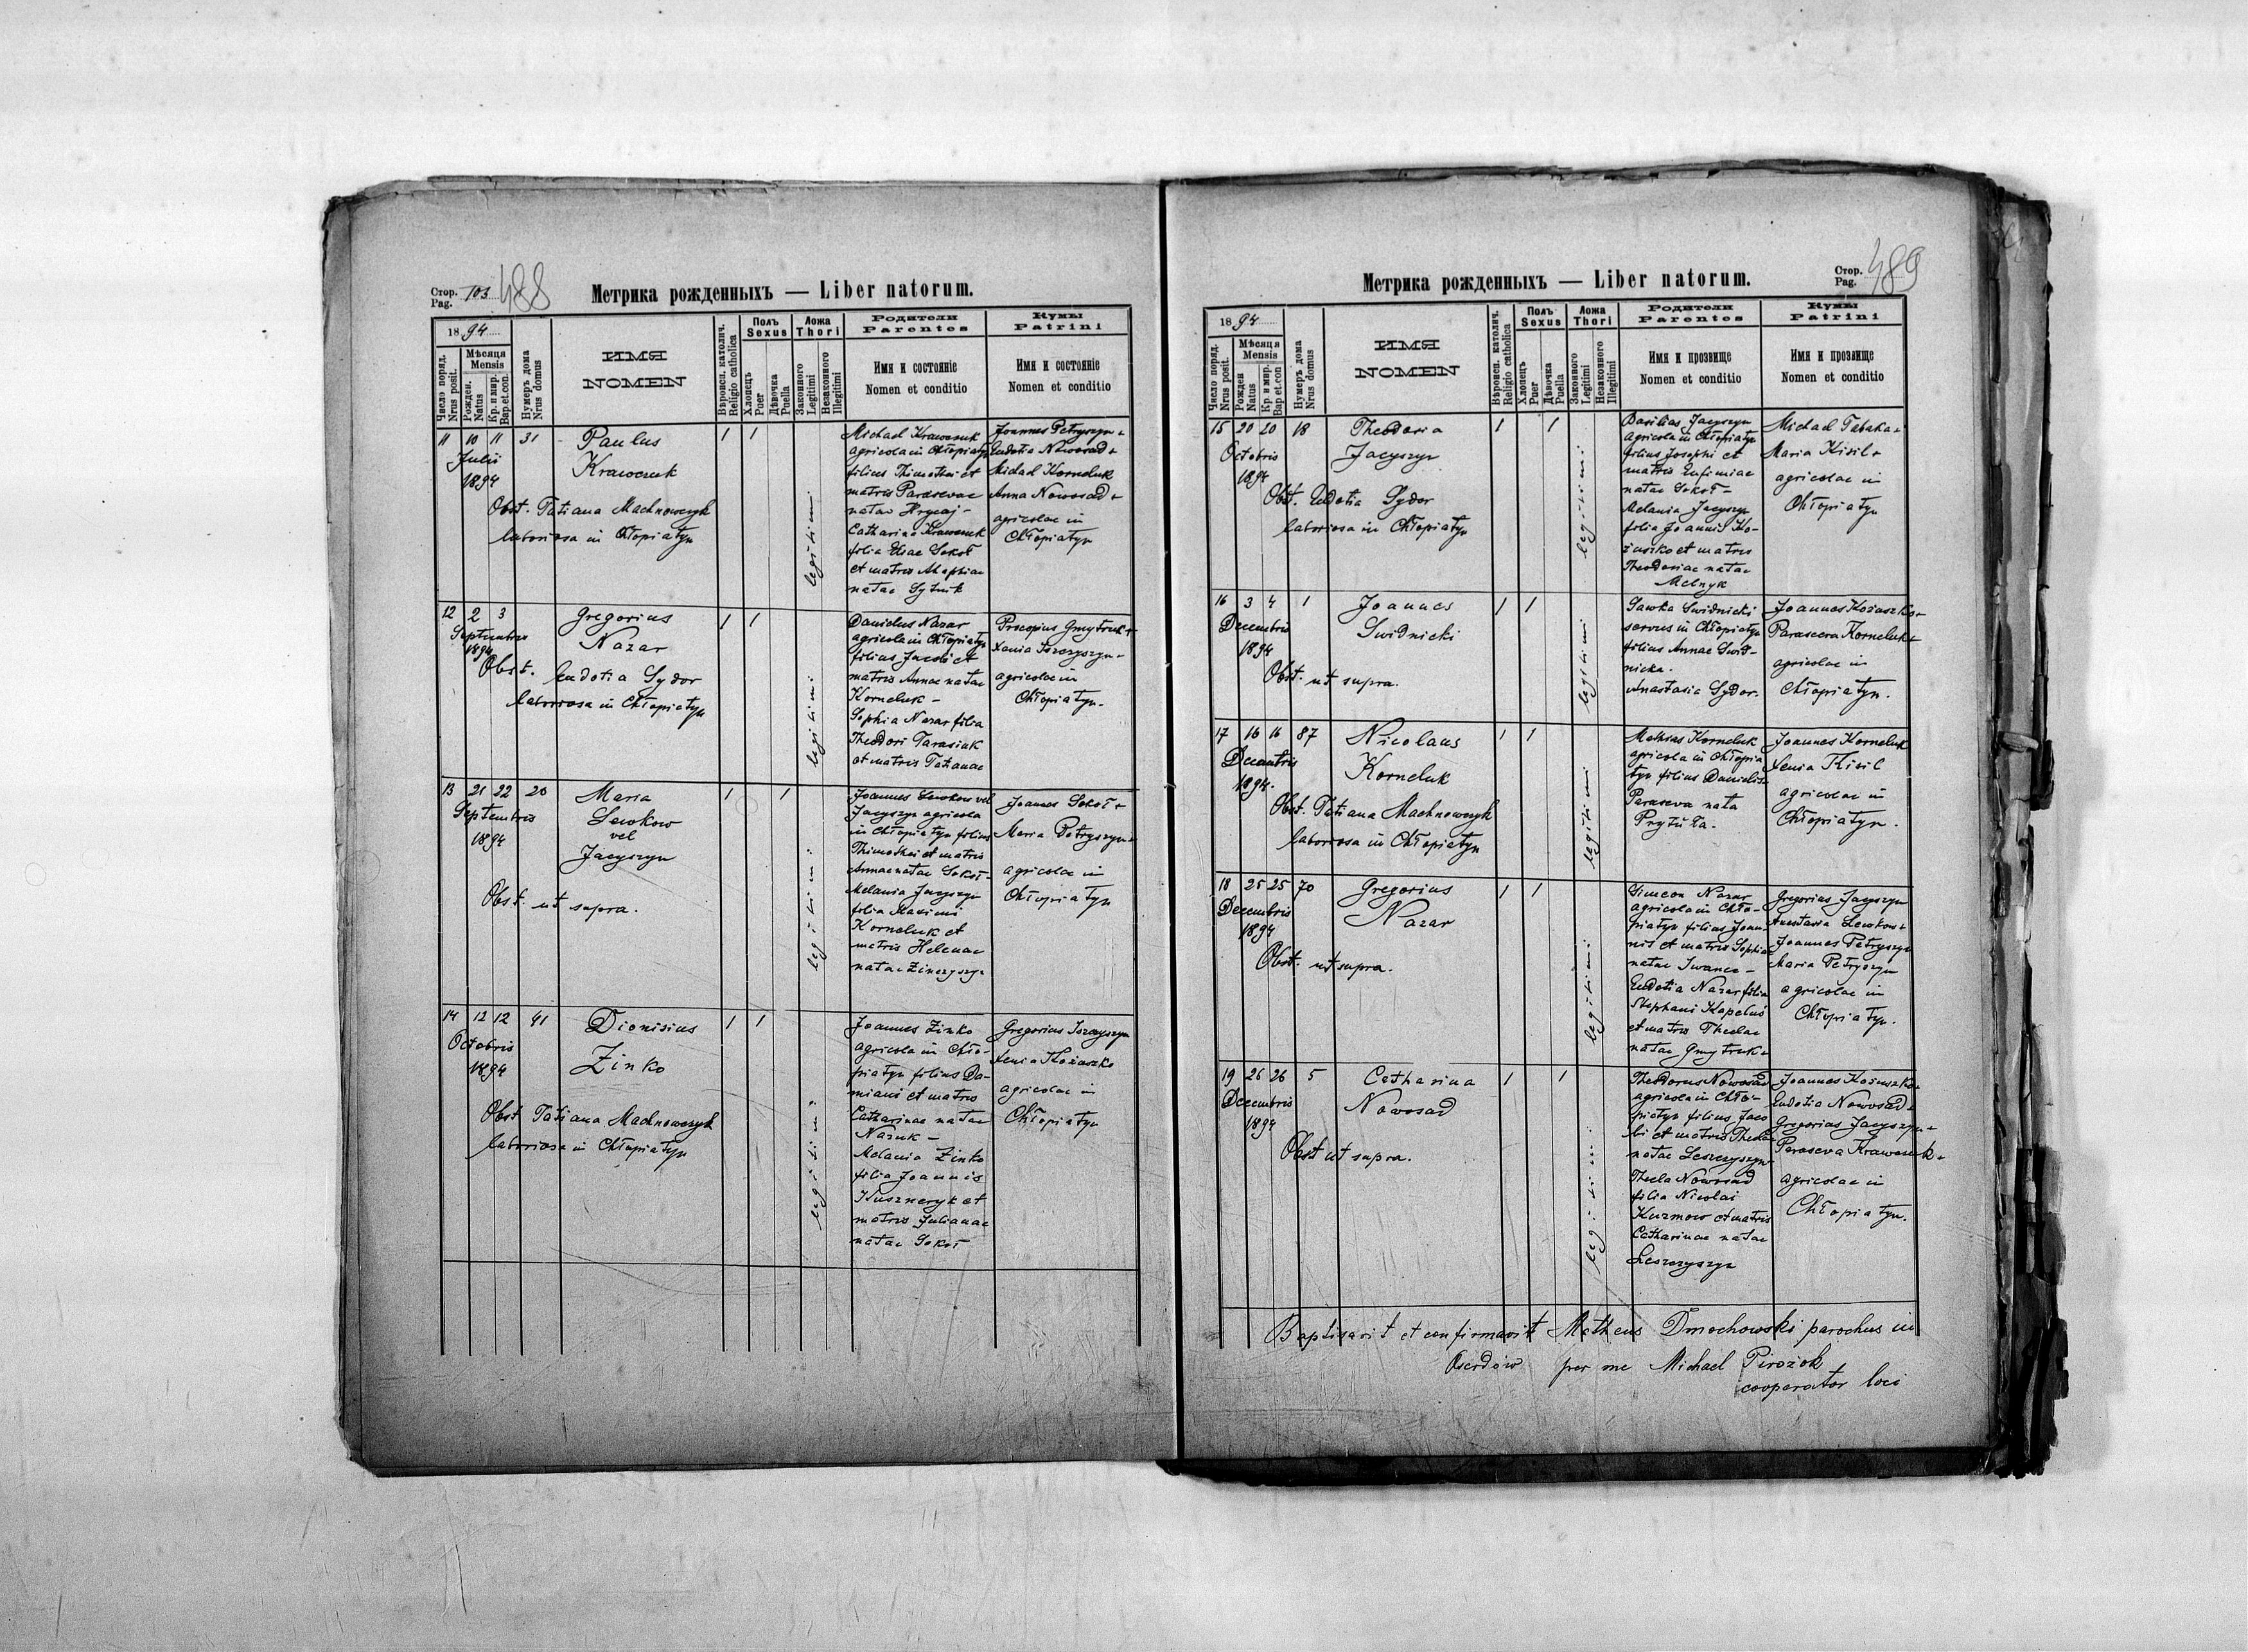 Стор. Pag. 103 488
Метрика рожденныхъ — Liber natorum.
1894
Число поряд. Nrus posit.
Мѣсяца Mensis
Рожден. Natus
Кр. и мир. Bap. et con.
Нумеръ дома Nrus domus
ИМЯ
NOMEN
Вѣроисп. католич. Religio catholica
Полъ Sexus
Хлопецъ Puer
Дѣвочка Puella
Ложа Thori
Законного Legitimi
Незаконного Illegitimi
Родители
Parentes
Имя и состоянiе
Nomen et conditio
Кумы
Patrini
Имя и состоянiе
Nomen et conditio
11 10 11 31
Julii
1894
Paulus
Krawczuk
Obst. Tatiana Machnowczyk
laboriosa in Chłopiatyn
1 1
legitimi
Michael Krawczuk
agricola in Chłopiatyn
filius Thimothei et
matris Parascevae
natae Hrycaj -
Catharina Krawczuk
filia Eliae Sokoł
et matris Ahaphiae
natae Sytnik
Joannes Petryszyn +
Eudotia Nowosad +
Michael Korneluk
Anna Nowosad +
agricolae in
Chłopiatyn
12 2 3
Septembris
1894
Gregorius
Nazar
Obst. Eudotia Sydor
laboriosa in Chłopiatyn
1 1
legitimi
Danielus Nazar
agricola in Chłopiatyn
filius Jacobi et
matris Annae natae
Korneluk -
Sophia Nazar filia
Theodori Tarasiuk
et matris Tatianae
Procopius Gmytruk +
Xenia Iszczyszyn -
agricolae in
Chłopiatyn.
13 21 22 20
Septembris
1894
Maria
Lewkow
vel
Jacyszyn
Obst. ut supra.
1 1
legitimi
Joannes Lewkow vel
Jacyszyn agricola
in Chłopiatyn filius
Thimothei et matris
Annae natae Sokoł -
Melania Jacyszyn
filia Maximi
Korneluk et
matris Helenae
natae
Joannes Sokoł +
Maria Petryszyn +
agricolae in
Chłopiatyn
14 12 12 41
Octobris
1894
Dionisius
Zinko
Obst Tatiana Machnowczyk
laboriosa in Chłopiatyn
1 1
legitimi
Joannes Zinko
agricola in Chło-
piatyn filius Da-
miani et matris
Catharinae natae
Nazuk -
Melania Zinko
filia Joannis
Kuszneryk et
matris Julianae
natae Sokoł
Gregorius Iszczyszyn
Xenia Kożuszko
agricolae in
Chłopiatyn
Стор. Pag. 489
Метрика рожденныхъ — Liber natorum.
1894
Число поряд. Nrus posit.
Мѣсяца Mensis
Рожден Natus
Кр. и мир. Bap et con
Нумеръ дома Nrus domus
ИМЯ
NOMEN
Вѣроисп. католич. Religio catholica
Полъ Sexus
Хлопецъ Puer
Дѣвочка Puella
Ложа Thori
Законного Legitimi
Незаконного Illegitimi
Родители
Parentes
Имя и прозвище
Nomen et conditio
Кумы
Patrini
Имя и прозвище
Nomen et conditio
15 20 20 18
Octobris
1894
Theodosia
Jacyszyn
Obst. Eudotia Sydor
laboriosa in Chłopiatyn
1 1
legitimi
Basilius Jacyszyn
agricola in Chłopiatyn
filius Josephi et
matris Eufimiae
natae Sokoł -
Melania Jacyszyn
filia Joannis Ko-
żuszko et matris
Theodosiae natae
Melnyk
Michael Tabaka +
Maria Kisil +
agricolae in
Chłopiatyn
16 3 4 1
Decembris
1894
Joannes
Swidnicki
Obst. ut supra.
1 1
legitimi
Sawka Swidnicki
servus in Chłopiatyn
filius Annae Swid-
nicka.
Anastasia Sydor.
Joannes Kożuszko +
Parasceva Korneluk +
agricolae in
Chłopiatyn.
17 16 16 87
Decembris
1894.
Nicolaus
Korneluk
Obst. Tatiana Machnowczyk
laboriosa in Chłopiatyn
1 1
legitimi
Mathias Korneluk
agricola in Chłopia
tyn filius Danielis
Parasceva nata
Prytuła.
Joannes Korneluk
Xenia Kisil
agricolae in
Chłopiatyn.
18 25 25 70
Decembris
1894
Gregorius
Nazar
Obst. ut supra.
1 1
legitimi
Simeon Nazar
agricola in Chło-
piatyn filius Joan-
nis et matris Sophiae
natae Iwanec -
Eudotia Nazar filia
Stephani Kapeluś
et matris Theclae
natae Gmytruk +
Gregorius Jacyszyn
Anastasia Lewkow +
Joannes Petryszyn
Maria Petryszyn
agricolae in
Chłopiatyn.
19 26 26 5
Decembris
1894
Catharina
Nowosad
Obst ut supra.
1 1
legitimi
Theodorus Nowosad
agricola in Chło-
piatyn filius Jaco
bi et matris Theclae
natae Leszczyszyn
Thecla Nowosad
filia Nicolai
Kuzmow et matris
Catharinae natae
Leszczyszyn
Joannes Kożuszko +
Eudotia Nowosad +
Gregorius Jacyszyn +
Parasceva Krawczuk +
agricolae in
Chłopiatyn.
Baptisavit et confirmavit Matheus Dmochowski parochus in
Oserdów per me Michael Pirożok
cooperator loci